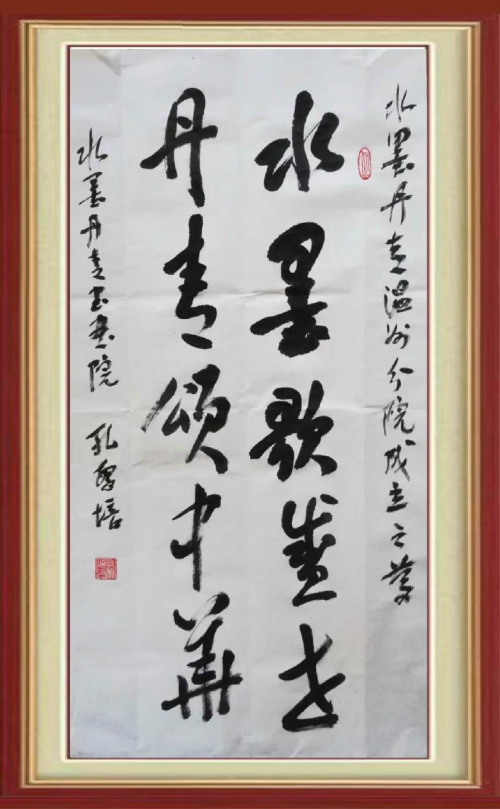 水墨丹青温州分院成立之
水墨歌盛世
丹青颂中華
水墨丹青书画院 孔